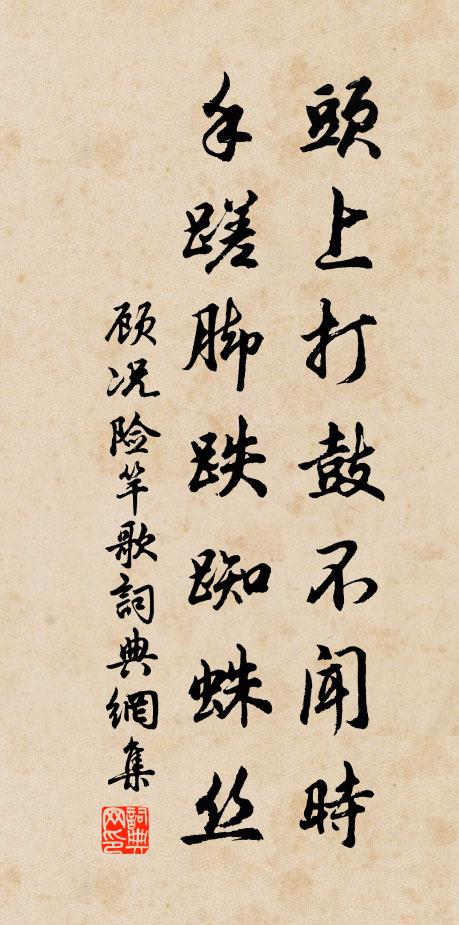 頭上打鼓不闻時
手蹉脚跌踟蛛丝
顾况险竿歌詞典網集
詞典网印